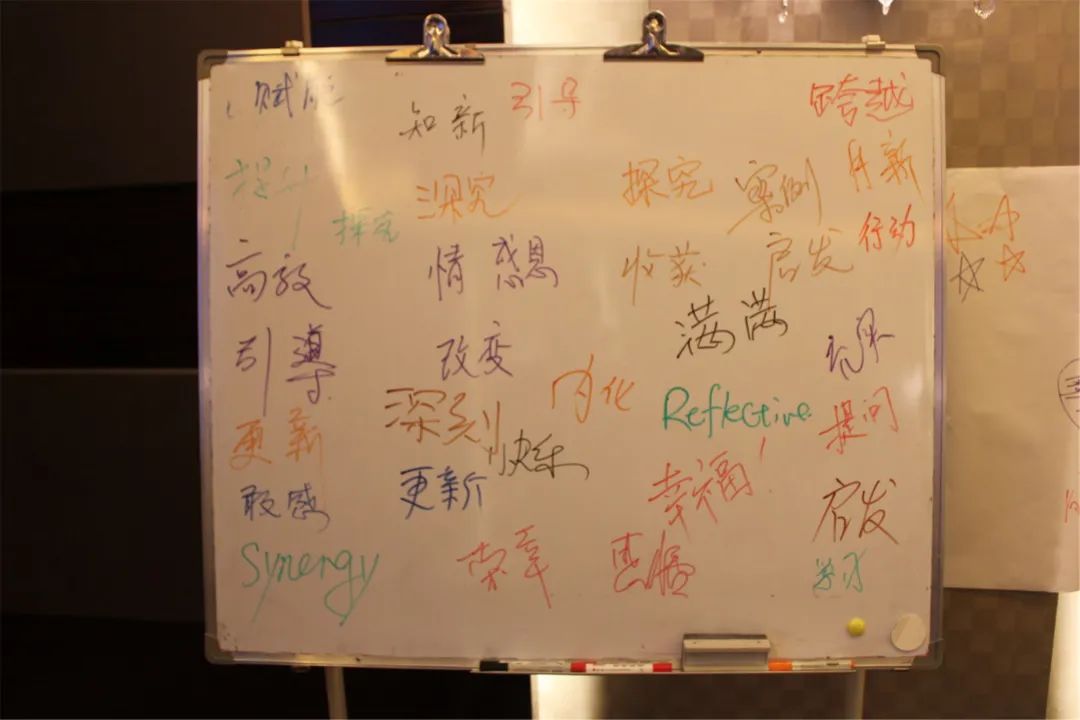 赋能
知新
引导
跨越
提升
探究
深究
探究
案例
月新
行动
高效
情
感恩
收获
启发
满满
引導
改变
内化
Reflective
提问
更新
深刻
快乐
敢感
更新
幸福!
启发
Synergy
荣幸
学习